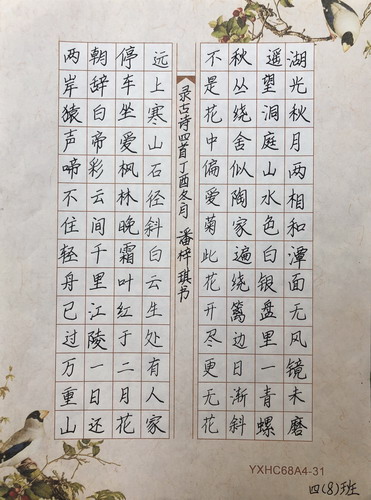 湖光秋月两相和潭面无风镜未磨
遥望洞庭山水色白银盘里一青螺
秋丛绕舍似陶家遍绕篱边日渐斜
不是花中偏爱菊此花开尽更无花
录古诗四首丁酉冬月潘梓琪书
远上寒山石径斜白云生处有人家
停车坐爱枫林晚霜叶红于二月花
朝辞白帝彩云间千里江陵一日还
两岸猿声啼不住轻舟已过万重山
YXHC68A4-31
四(8)班